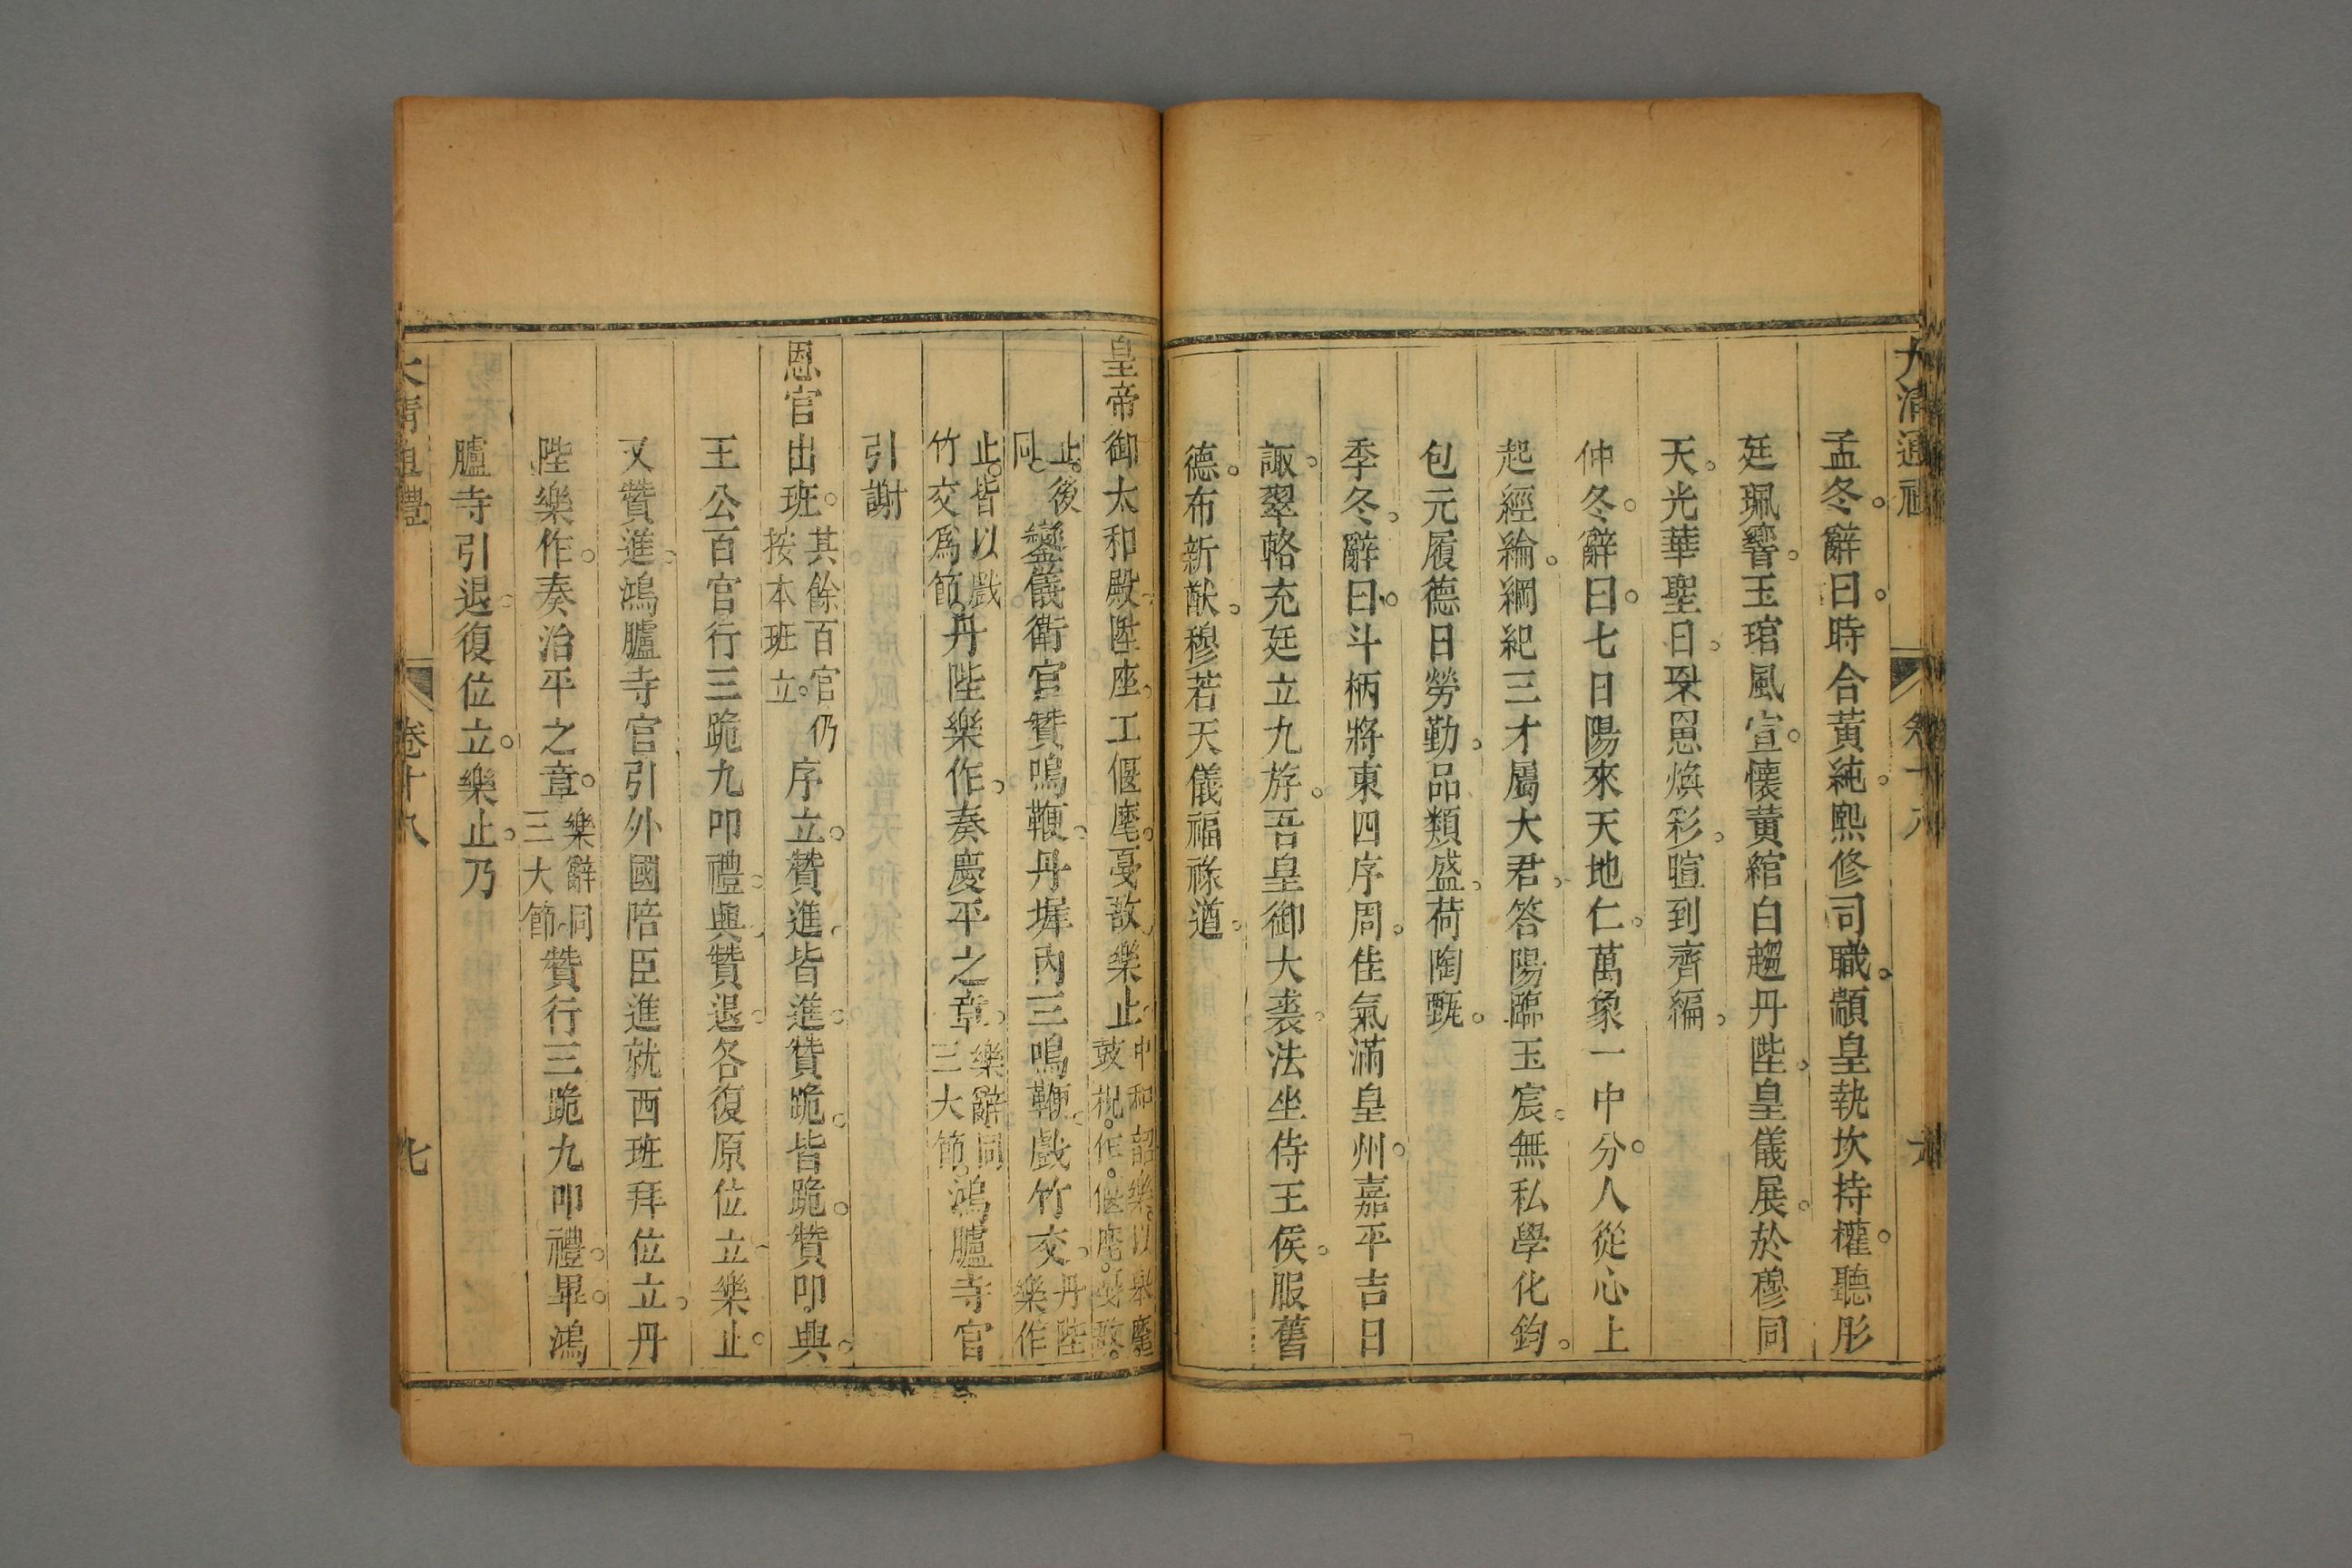 大清通禮 卷十八
孟冬。辭曰。時合黃純。熙修司職。顓皇執坎持權。聽彤
廷珮響。玉琯風宣。懷黃綰白趨丹陛。皇儀展。於穆同
天。光華聖日。罙恩煥彩。暄到齊編。
仲冬。辭曰。七日陽來天地仁。萬象一中分。人從心上
起經綸。綱紀三才屬大君。答陽臨玉宸。無私學化鈞。
包元履德日勞勤。品類盛。荷陶甄。
季冬。辭曰。斗柄將東四序周。佳氣滿皇州。嘉平吉日
諏。翠輅充廷立九斿。吾皇御大裘。法坐侍王侯。服舊
德。布新猷。穆若天。儀福祿遒。
皇帝御太和殿陞座。工偃麾。戞敔。樂止。中和韶樂。以舉麾。鼓柷。作。偃麾。戞敔。
止。後同。鑾儀衛官贊鳴鞭。丹墀內三鳴鞭。戲竹交。丹陛樂作
止。皆以戲竹交爲節。丹陛樂作。奏慶平之章。樂辭同三大節。鴻臚寺官
引謝
恩官出班。其餘百官仍按本班立。序立。贊進。皆進。贊跪。皆跪。贊叩。興。
王公百官行三跪九叩禮。興。贊退。各復原位立。樂止。
又贊進。鴻臚寺官引外國陪臣進就西班拜位立。丹
陛樂作。奏治平之章。樂辭同三大節。贊行三跪九叩禮。畢。鴻
臚寺引退。復位立。樂止。乃
大清通禮 卷十八 七